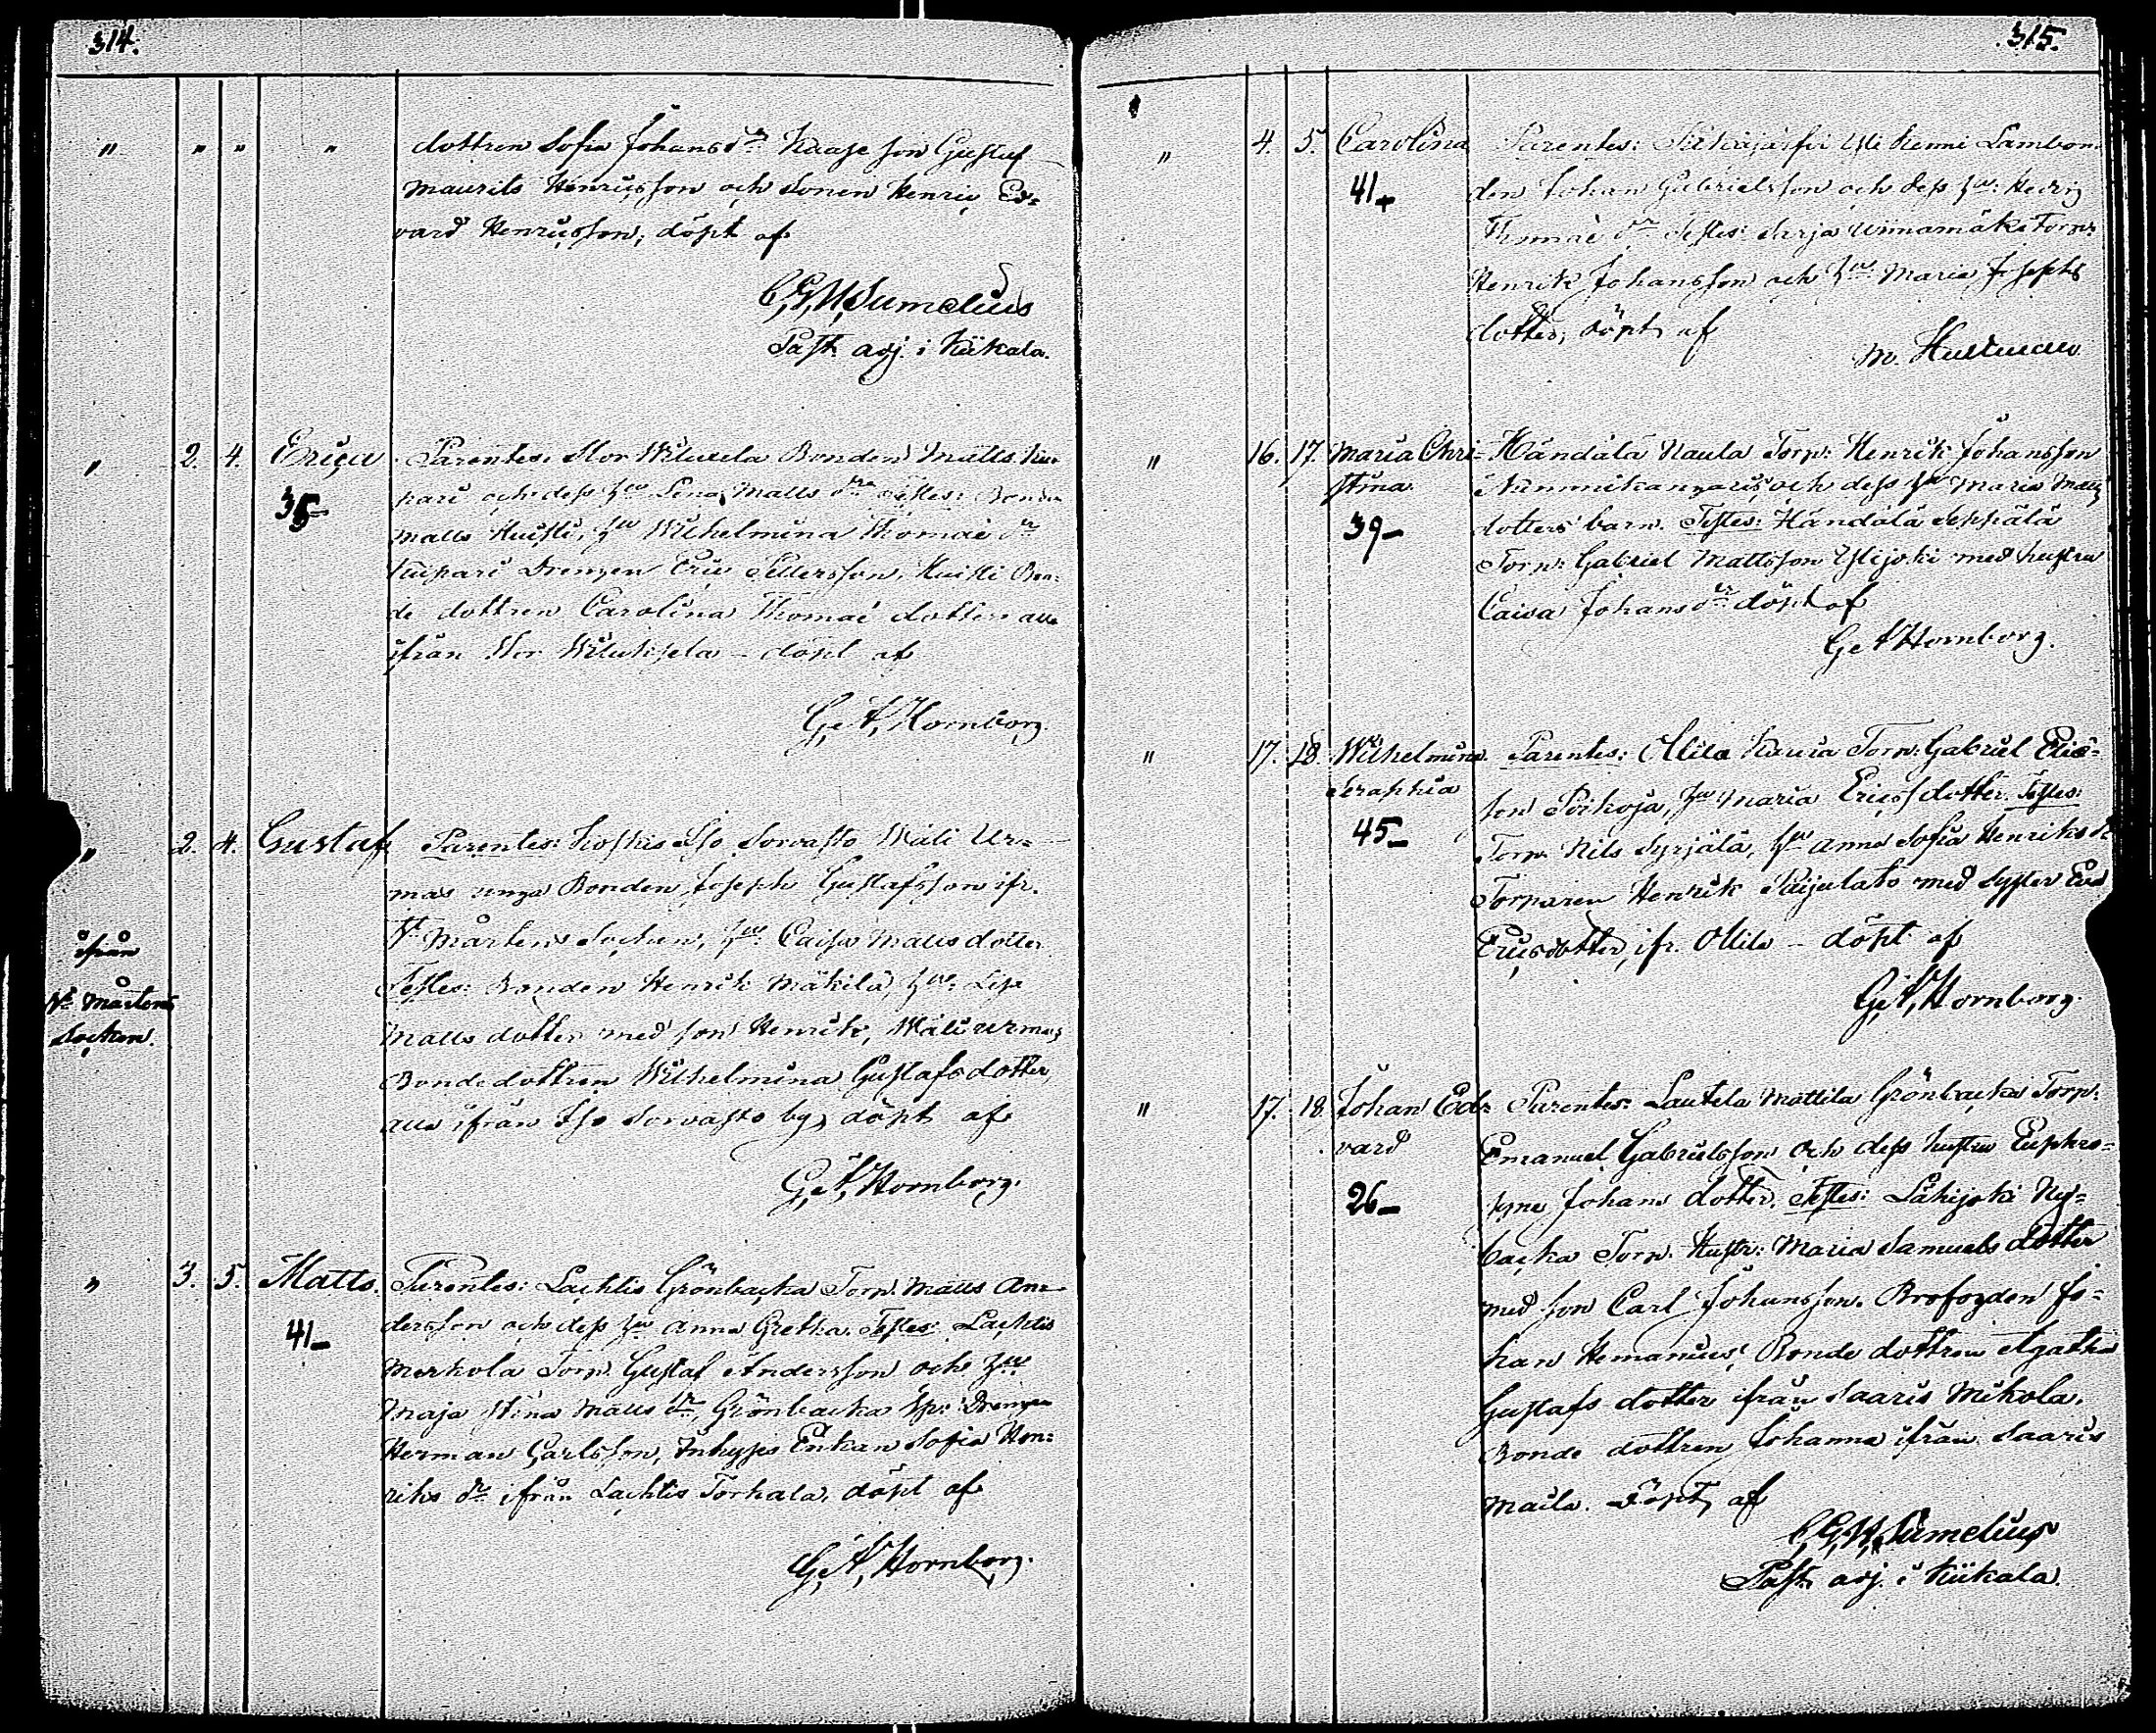 314.
" " " " dottren Sofia Johans dr Kaase son Gustaf
Maurits Henricsson och Sonen Henric Ed-
vard Henricsson, döpt af
C.G.W. Sumelius
Past. adj. i Kiikala.
" 2. 4. Erica Parentes: Stor Bonden Matts Ku-
35- pari och dess hu Lena Matts dr Testes: Bonden
Matts Huisti, hu Wilhelmina Thomae dr
Kupari Drengen Eric Pettersson, Huisti Bon-
de dottren Carolina Thomae dotter alla
ifrån Stor döpt af
G.A. Hornborg.
" 2. 4. Gustaf Parentes: Koskis Iso Sorvasto Wäli Ur-
mas unga Bonden Joseph Gustafsson ifr.
St Mårtens Socken, hu: Caisa Matts dotter
Testes: Bonden Henrik Mäkilä, hu: Lisa
Matts dotter med son Henrik, Wäli urmas
Bonde dottren Wilhelmina Gustafs dotter,
alla ifrån Iso Sorvasto by, döpt af
G.A. Hornborg.
ifrån
St Mårtens
Socken.
" 3. 5. Matts. Parentes: Lachtis Grönbacka Torp. Matts An-
41- dersson och dess hu Anna Gretha. Testes: Lachtis
Markola Torp. Gustaf Andersson och hu
Maja Stina Matts dr, Grönbacka Drengen
Herman Carlsson, Inhyses Enkan Sofia Hen-
riks dr ifrån Lachtis Torkala, döpt af
G.A. Hornborg.
315.
" 4. 5. Carolina Parentes: Yli Kenni Lambon-
41+ den Johan Gabrielsson och dess hu: Hedvig
Thomae dr Testes: Sarja Wiinamäki Torp:
Henrik Johansson och hu: Maria Josephs
dotter, döpt af
M. Hultman
" 16. 17. Maria Chri- Händälä Naula Torp: Henrik Johansson
stina. Nummikangaris, och dess hu Maria Matts
39- dotters barn. Testes: Händälä Seppälä
Torp: Gabriel Mattsson Ylijoki med hustru
Caisa Johans dr döpt af
G.A. Hornborg.
" 17. 18. Wilhelmina Parentes: Ollila Torp: Gabriel Elias-
Seraphia son Poikoja, hu: Maria Ericsdotter. Testes:
45- Torp. Nils Syrjälä, hu Anna Sofia Henriks dr
Torparen Henrik Paijulato med syster Eva
Ericsdotter, ifr. Ollila - döpt af
G.A. Hornborg.
" 17. 18. Johan Ed- Parentes: Lautela Mattila Grönbacka Torp:
vard Emanuel Gabrielsson och dess hustru Euphro-
26- syne Johans dotter. Testes: Lähijoki Ny-
backa Torp. Hustr: Maria Samuels dotter
med son Carl Johansson. Brofogden Jo-
han Hemanius, Bonde dottren Agatha
Gustafs dotter ifrån Saaris Mikola.
Bonde dottren Johanna ifrån Saaris
Maila. Döpt af
C.G.W. Sumelius
Past. adj. i Kiikala.